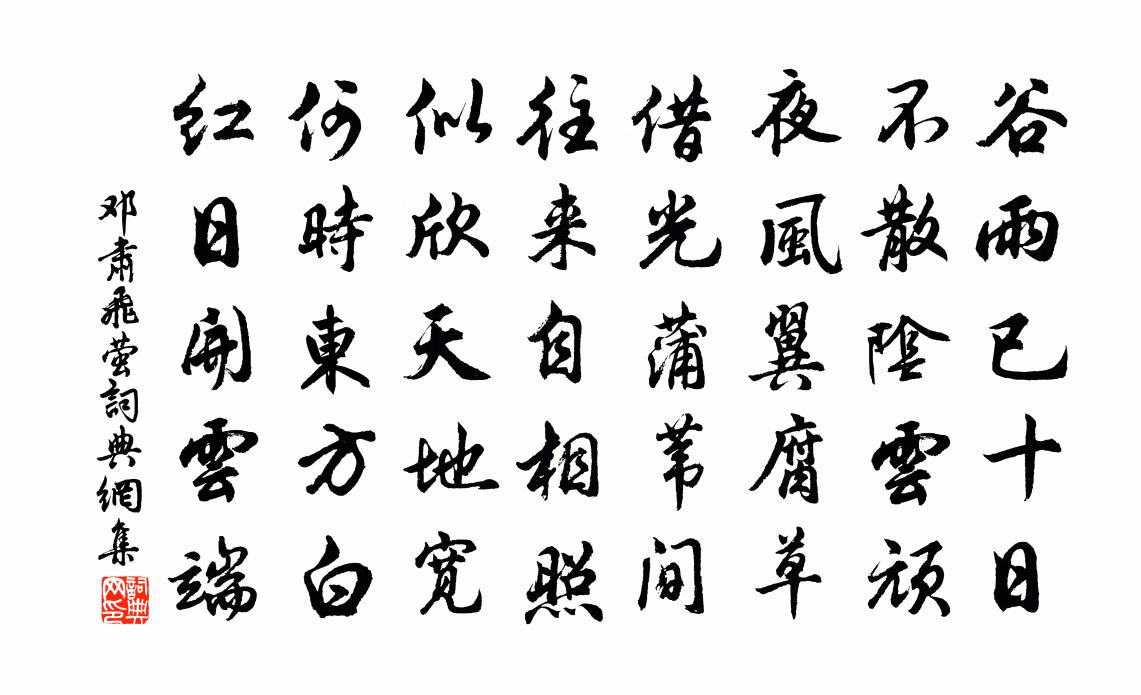 谷雨已十日
不散陰雲頑
夜風翼腐草
借光蒲苇间
往来自相照
似欣天地寬
何時東方白
红日開雲端
邓肅飛萤詞典網集
詞典網印